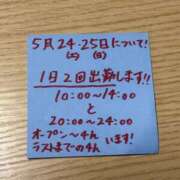 5月24・25日について!
(土) (日)
1日2回出勤します!!
10:00~14:00
と
20:00~24:00
オープン~4h
ラストまでの4h います!